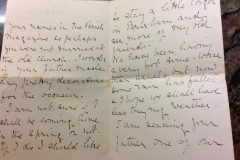 your names in the Parish
magazine as perhaps
you were not married at
the old church. I wonder
if your father made
any pretty decorations
for the occasion.
I am not sure if I
shall be coming home
in the spring or not.
If I do I should like
to stay a little longer
in and
see more of my old
friends.
We have been having
a very hot time when
some rain has fallen
& I hope we shall have
less trying weather.
I am sending your
father one of our